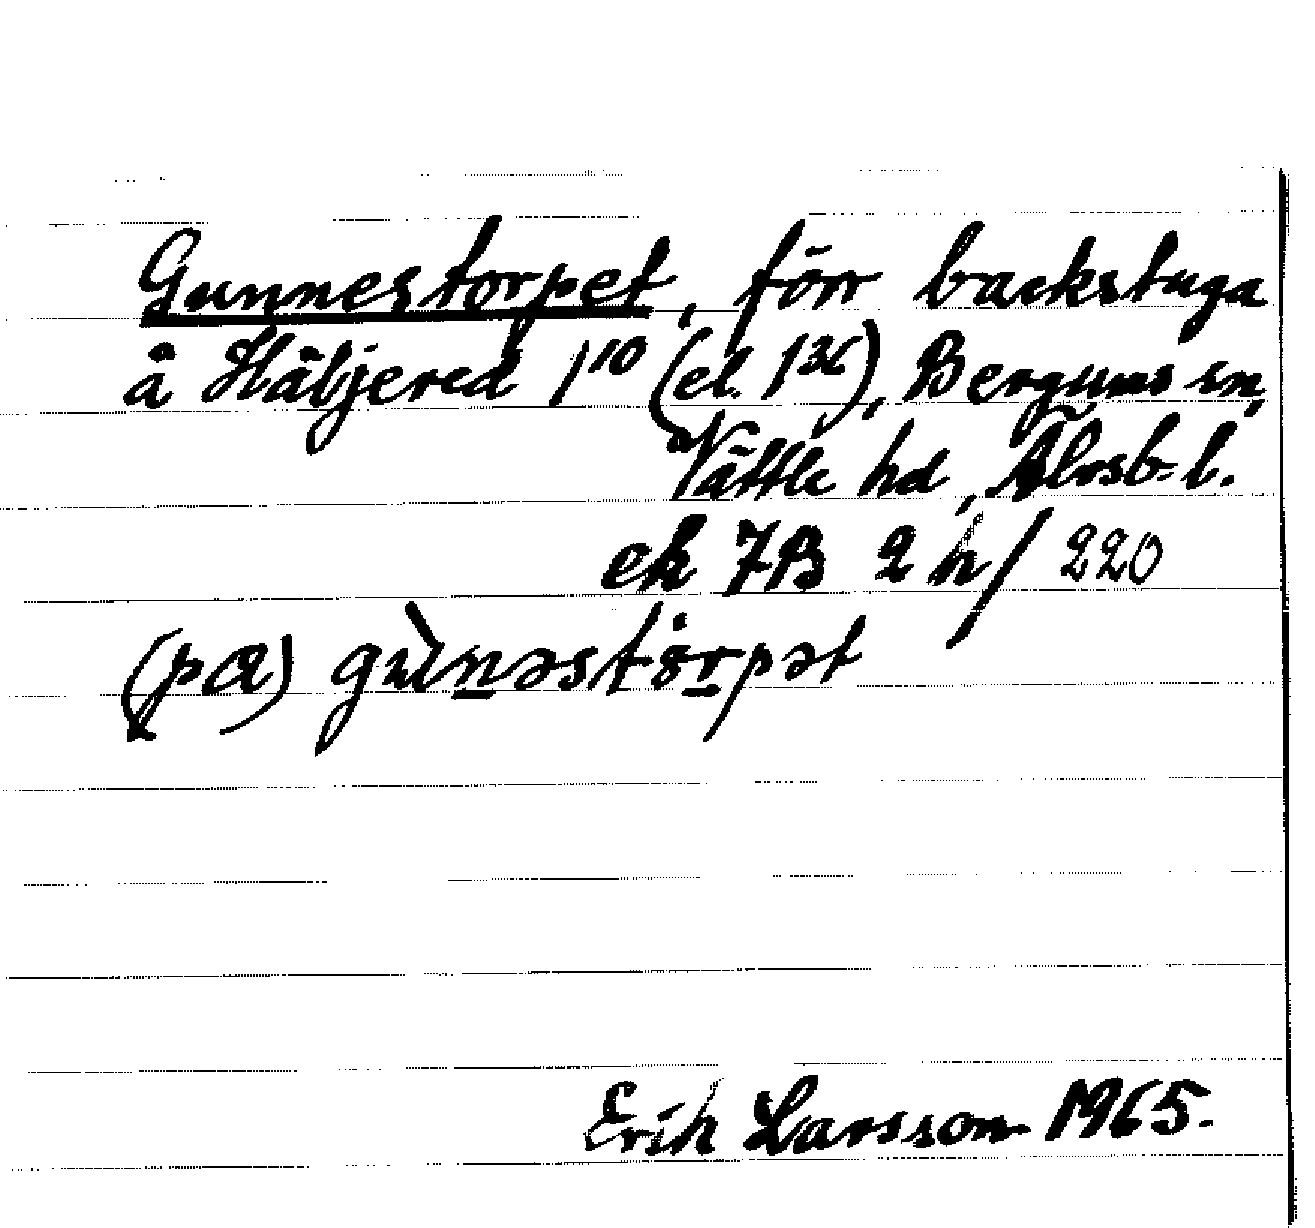 Gunnestorpet, förr backstuga
å Häljered 1¹⁰ (el. 1³⁶), Bergums sn,
Vättle hd, Älvsb. l.
ek 7B 2 h/220
(pɑ) gùnəstọrpət
Erik Larsson 1965.